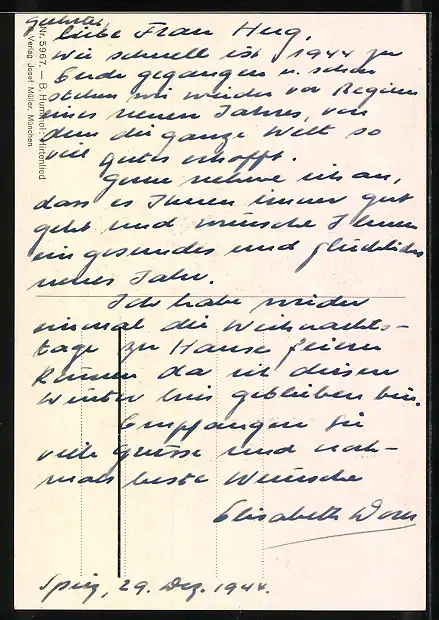 geehrte,
liebe Frau Hug,
Wie schnell ist 1944 zu
Ende gegangen u. schon
stehen wir wieder vor Beginn
eines neuen Jahres, von
dem die ganze Welt so
viel gutes erhofft.
Gern nehme ich an,
dass es Ihnen immer gut
geht und wünsche Ihnen
ein gesundes und glückliches
neues Jahr.
Ich habe wieder
einmal die Weihnachts-
tage zu Hause feiern
können da ich diesen
Winter hier geblieben bin.
Empfangen Sie
viele Grüsse und noch-
mals beste Wünsche
Elisabeth
Spiez, 29. Dez. 1944.
Nr. 5967. — B. Hummel: Hirtenlied
Verlag Josef Müller, München